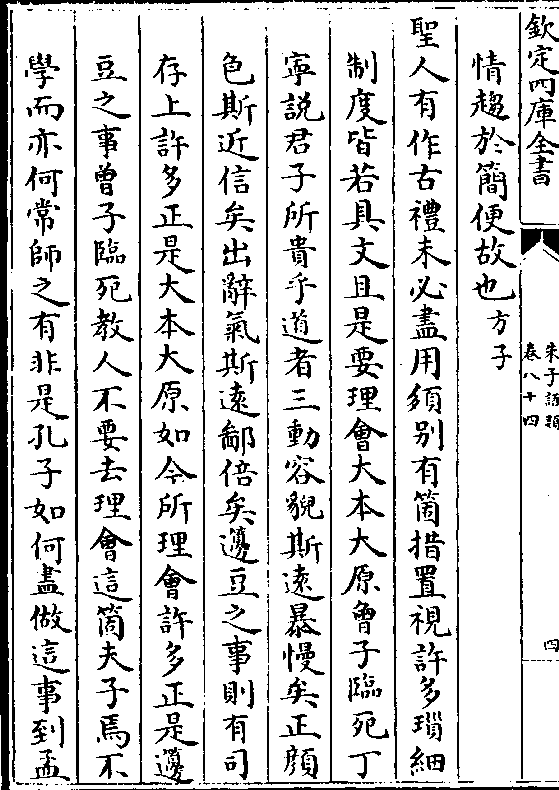 欽定四庫全書
朱子語類
卷八十四
四
情趨於簡便故也方子
聖人有作古禮未必盡用須别有箇措置視許多瑣細
制度皆若具文且是要理會大本大原曾子臨死丁
寧說君子所貴乎道者三動容貌斯遠暴慢矣正顔
色斯近信矣出辭氣斯遠鄙倍矣籩豆之事則有司
存上許多正是大本大原如今所理會許多正是籩
豆之事曾子臨死教人不要去理會這箇夫子焉不
學而亦何常師之有非是孔子如何盡做這事到孟